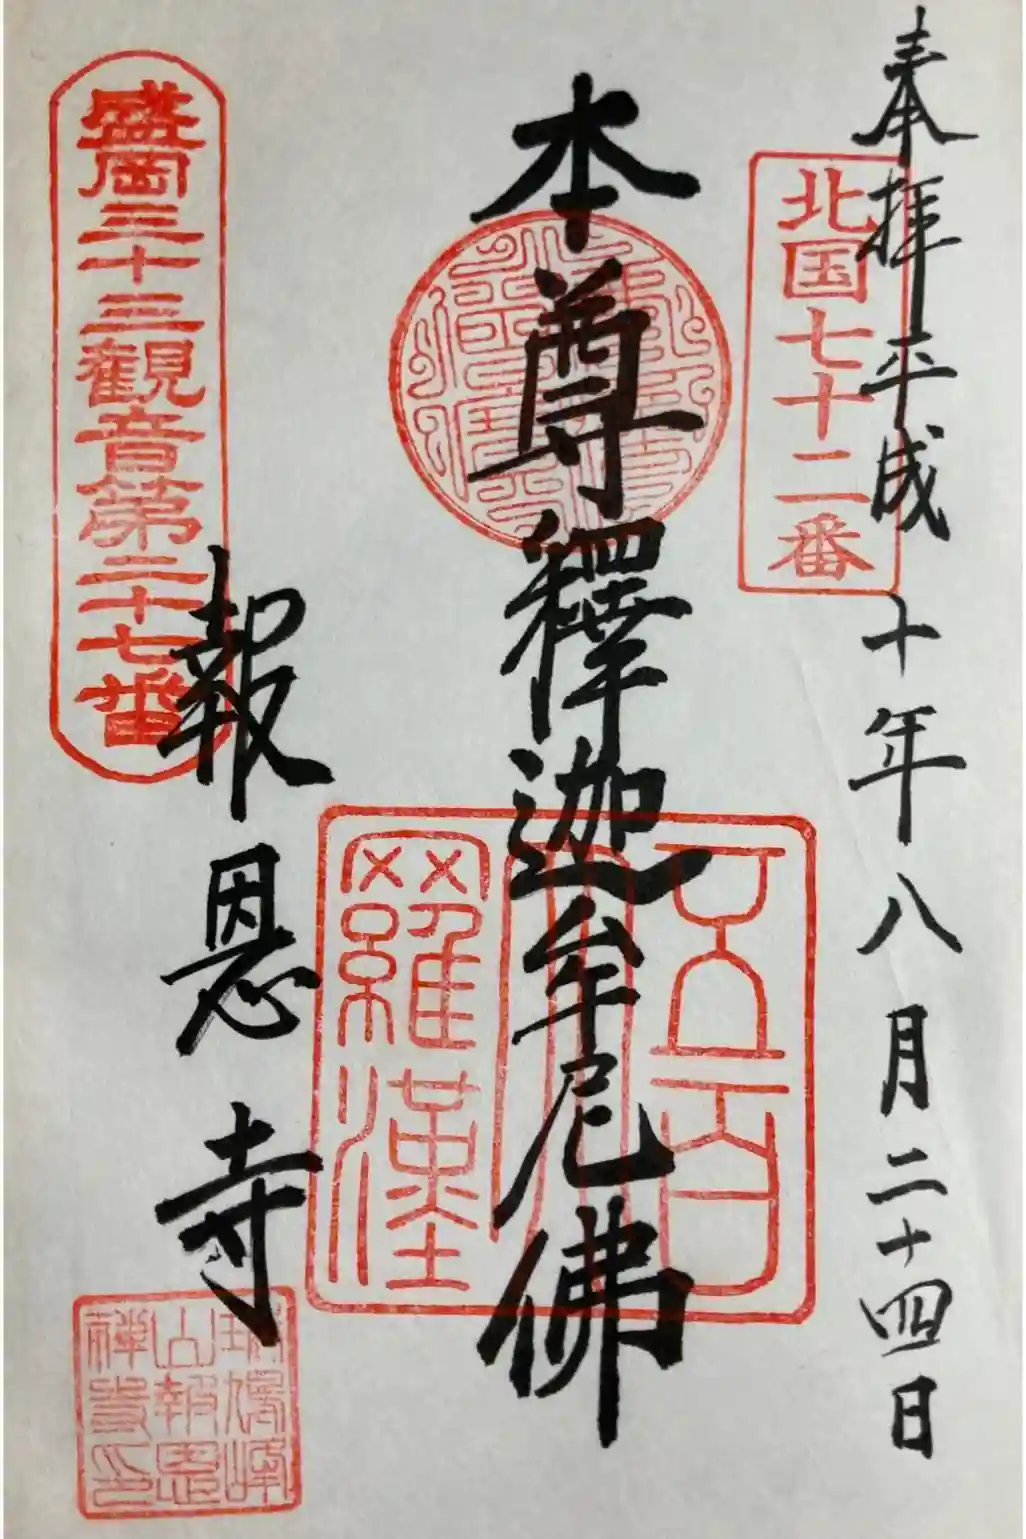 奉拝平成十年八月二十四日
北国七十二番
本尊釋迦牟尼佛
五百
羅漢
報恩寺
盛岡三十三観音第二十七番